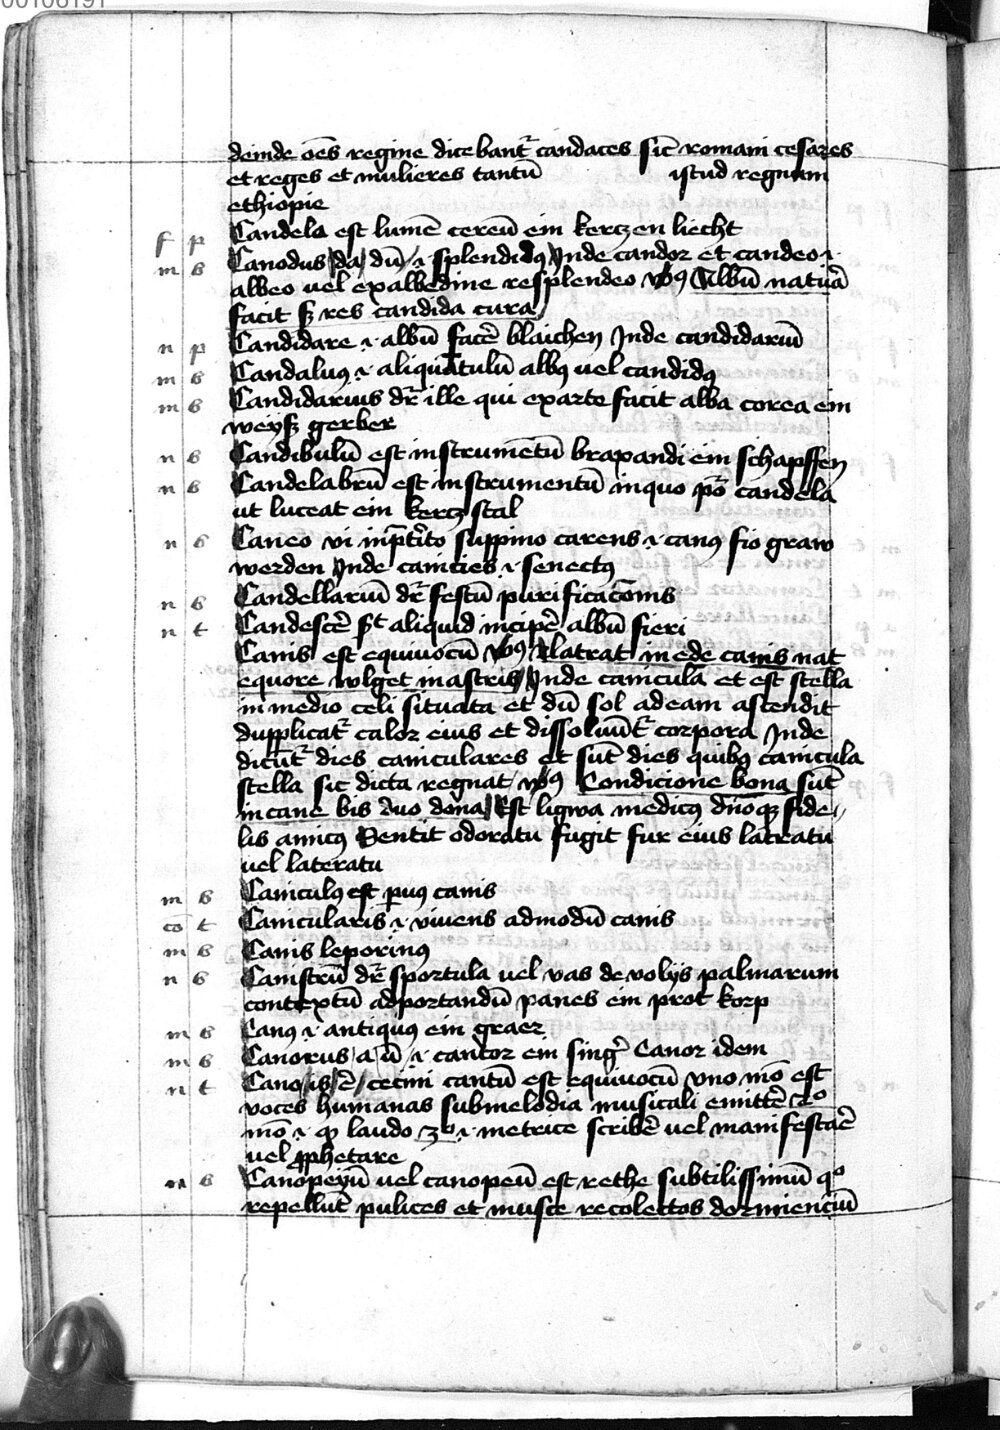 00106191
deinde oēs regine dicebant᷑ candaces sic̄ romani cesares
et reges et mulieres tantū istud regnum
ethiopie
f p Candela est lumē cereū ein kerczen liecht
m b Canodus da dū .i. splendidus Inde candor et candeo .i.
albeo uel exalbedine resplendeo v̄s Albū naturā
facit sz res candida cura
n p Candidare .i. albū facē blaichen Inde candidariū
m b Candaluus .i. aliquātulū albus uel candidus
m b Candidarius dr̄ ille qui exarte facit alba corea ein
weysz gerber
n b Candibulū est instrumētū braxandi ein schapffen
n b Candelabrū est instrumentū inquo pō candela
ut luceat ein kercz stal
n b Caneo vi inp̄terito suppino carens .i. canus fio graw
werden Inde canicies .i. senectus
n b Candellariū dr̄ festū purificac̄onis
n t Candescē st aliquid incipē albū fieri
Canis est equiuocū v̄s Latrat in ede canis nat
equore wlget in astris Inde canicula et est stella
in medio celi situata et dū sol adeam ascendit
dupplicat᷑ calor eius et dissoluūt᷑ corpora Inde
dicūt᷑ dies caniculares et sūt dies quibus canicula
stella sic dicta regnat v̄s Condicione bona sūt
in cane bis duo dona Est ligwa medicus dn̄oqz fide
lis amicus Sentit odoratu fugit fur eius latratu
uel lateratu
m b Caniculus est puus canis
cō t Canicularis .i. vivens admodū canis
m b Canis leporinus
n b Canistrū dr̄ sportula uel vas de volijs palmarum
contextū adportandū panes ein prot korp
m b Canus .i. antiquus ein graer
m b Canorus a ū .i. cantor ein singer Canor idem
n t Cano is ē cecini cantū est equiuocū vno mō est
voces humanas submelodia musicali emittē 2o
mō .i. qz laudo 3o .i. metrice scribē vel manifestaē
uel pphetare
n b Canopeyū uel canopeū est rethe subtilissimū qo
repellūt pulices et musce recolectos dormienciū